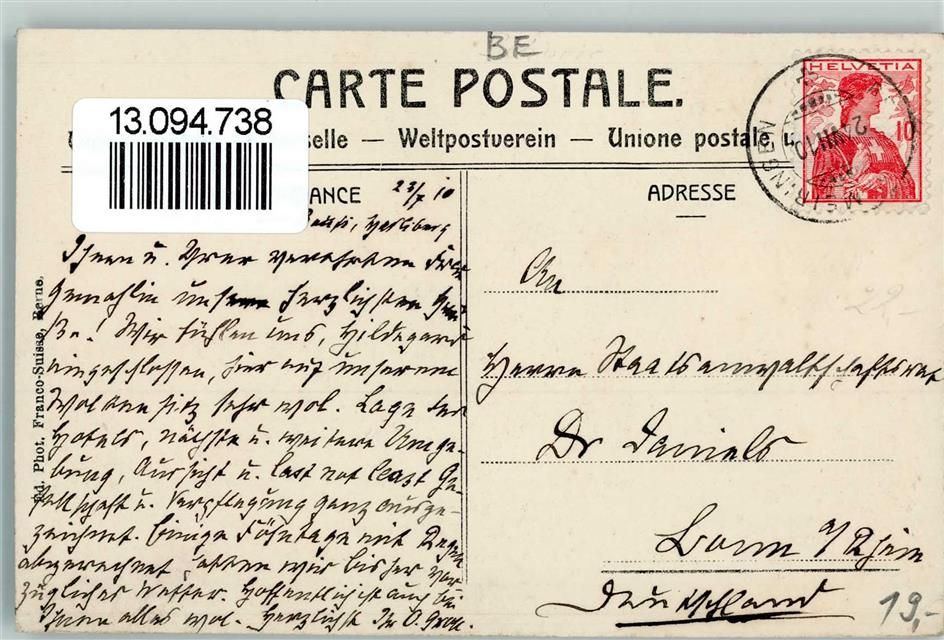 BE
CARTE POSTALE.
13.094.738
selle — Weltpostverein — Unione postale u
HELVETIA
10
MEIRINGEN
ANCE
ADRESSE
23/7 10
Ihnen u. Ihrer verehrten Frau
Gemahlin unsere herzlichsten Grü-
ße! Wir fühlen uns, Hildegard
eingeschlossen, hier auf unserem
Wolkensitz sehr wol. Lage des
Hotels, nächste u. weitere Umge-
bung, Aussicht u. last not least Ge-
sellschaft u. Verpflegung ganz ausge-
zeichnet. Einige Föhntage mit Regen
abgerechnet hatten wir bisher vor-
zügliches Wetter. Hoffentlich ist auch bei
Ihnen alles wol. Herzlichst Ihr
An
Herrn Staatsanwaltschaftsrat
Dr Daniels
Bonn a/Rhein
Deutschland
22,-
19,-
Ed. Phot. Franco-Suisse, Berne.